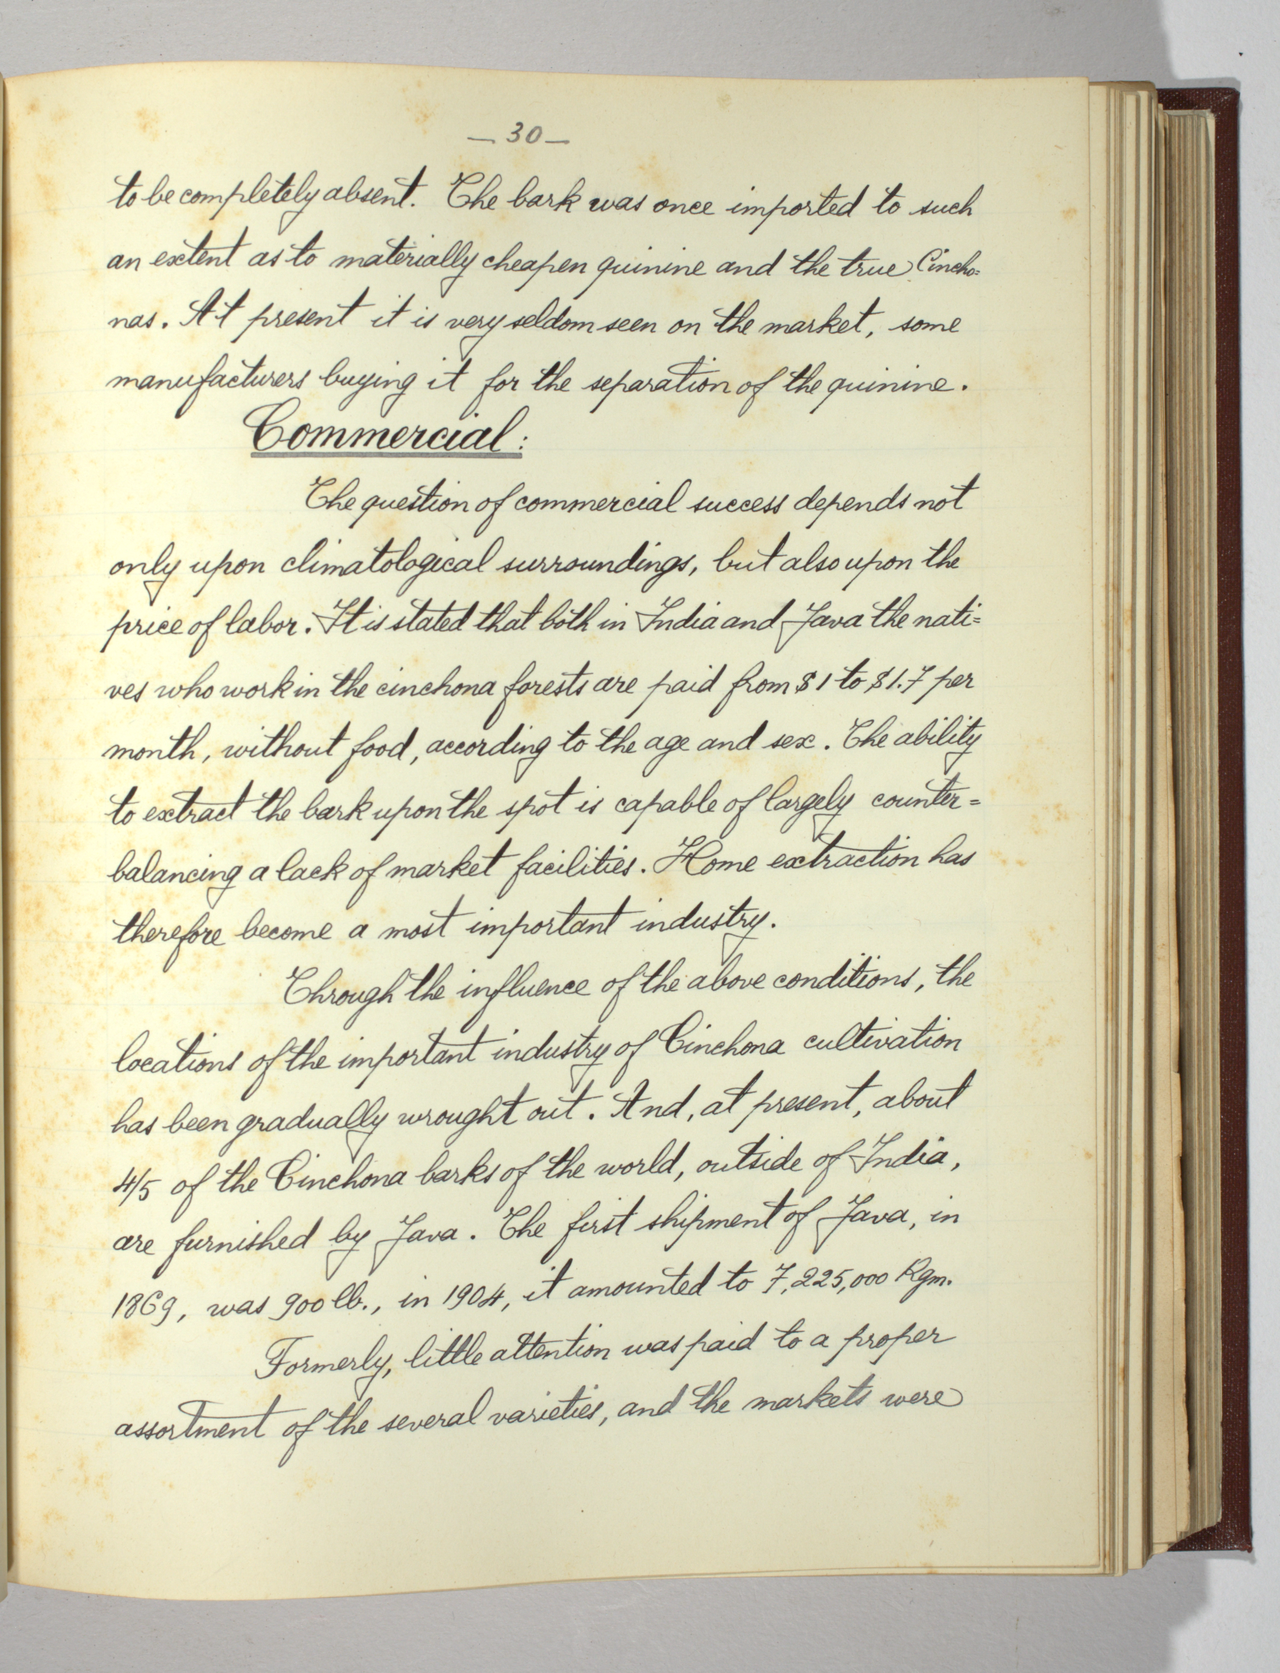 — 30 —
to be completely absent. The bark was once imported to such
an extent as to materially cheapen quinine and the true Cincho=
nas. At present it is very seldom seen on the market, some
manufacturers buying it for the separation of the quinine.
Commercial:
The question of commercial success depends not
only upon climatological surroundings, but also upon the
price of labor. It is stated that both in India and Java the nati=
ves who work in the cinchona forests are paid from $1 to $1.7 per
month, without food, according to the age and sex. The ability
to extract the bark upon the spot is capable of largely counter=
balancing a lack of market facilities. Home extraction has
therefore become a most important industry.
Through the influence of the above conditions, the
locations of the important industry of Cinchona cultivation
has been gradually wrought out. And, at present, about
4/5 of the Cinchona barks of the world, outside of India,
are furnished by Java. The first shipment of Java, in
1869, was 900 lb., in 1904, it amounted to 7,225,000 Kgm.
Formerly, little attention was paid to a proper
assortment of the several varieties, and the markets were